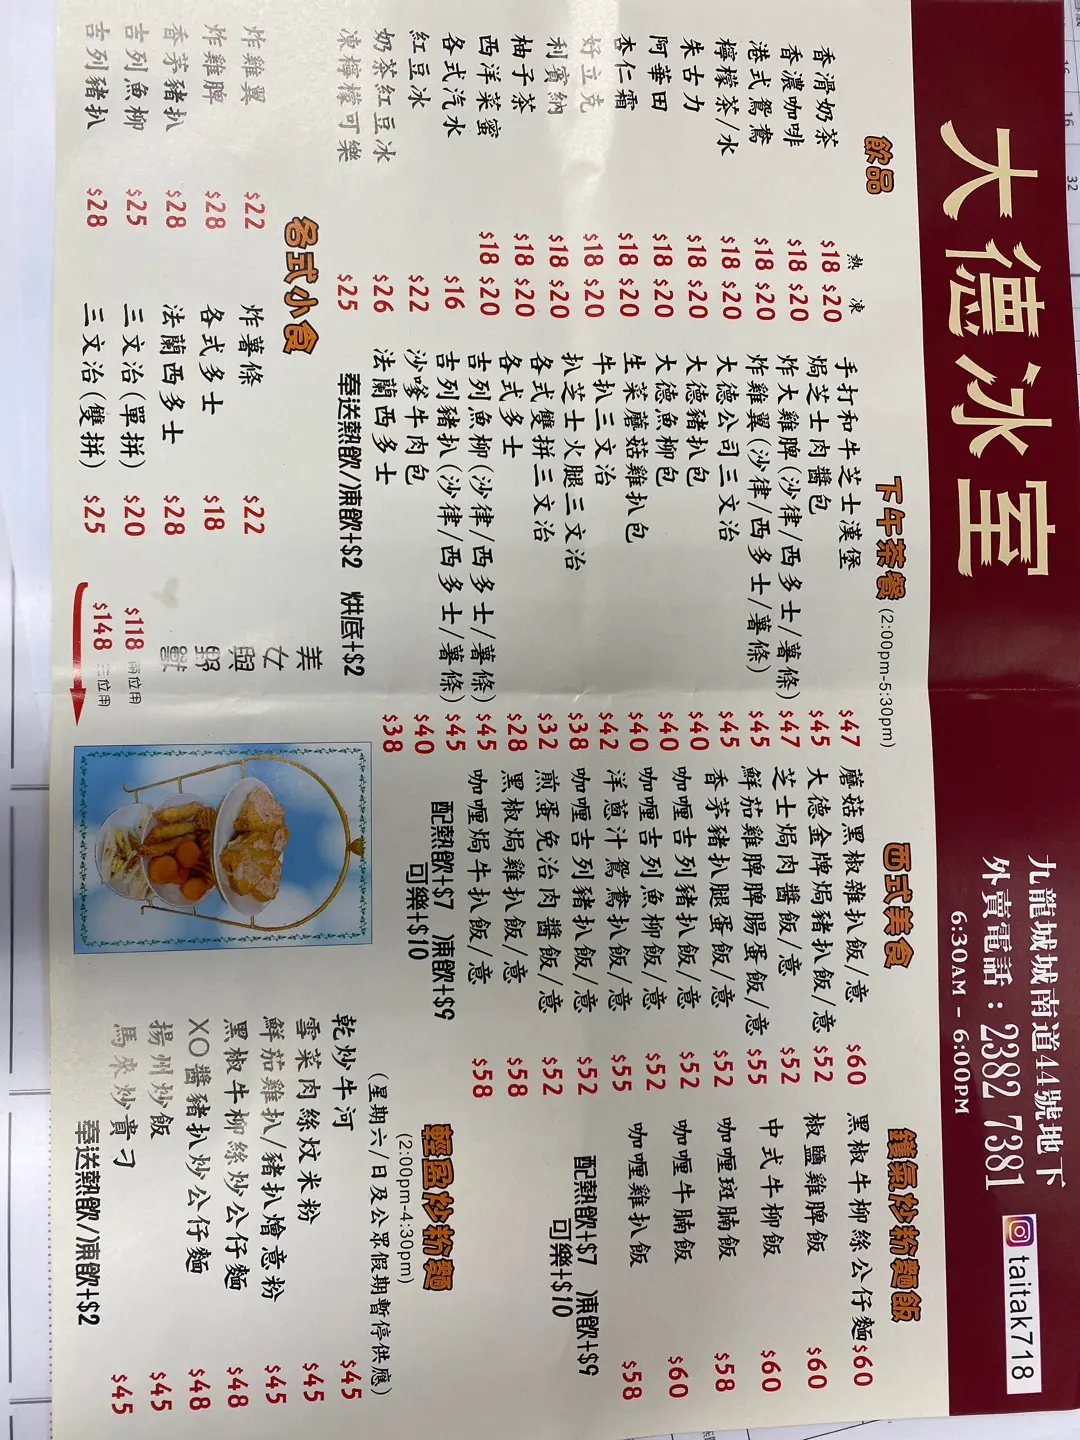 大德冰室
九龍城城南道44號地下
外賣電話：2382 7381
6:30AM - 6:00PM
taitak718
飲品
熱 凍
香滑奶茶 $18 $20
香濃咖啡 $18 $20
港式鴛鴦 $18 $20
檸檬茶/水 $18 $20
朱古力 $18 $20
阿華田 $18 $20
杏仁霜 $18 $20
好立克 $18 $20
利賓納 $18 $20
柚子茶 $18 $20
西洋菜蜜 $18 $20
各式汽水 $16
紅豆冰 $22
奶茶紅豆冰 $26
凍檸檬可樂 $25
下午茶餐 (2:00pm-5:30pm)
手打和牛芝士漢堡 $47
焗芝士肉醬包 $45
炸大雞脾(沙律/西多士/薯條) $47
炸雞翼(沙律/西多士/薯條) $45
大德公司三文治 $45
大德豬扒包 $40
大德魚柳包 $40
生菜蘑菇雞扒包 $40
牛扒三文治 $42
扒芝士火腿三文治 $38
各式雙拼三文治 $32
各式多士 $28
吉列魚柳(沙律/西多士/薯條) $45
吉列豬扒(沙律/西多士/薯條) $45
沙嗲牛肉包 $40
法蘭西多士 $38
奉送熱飲/凍飲+$2 烘底+$2
西式美食
蘑菇黑椒雞扒飯/意 $60
大德金牌焗豬扒飯/意 $52
芝士焗肉醬飯/意 $52
鮮茄雞脾脾腸蛋飯/意 $55
香茅豬扒腿蛋飯/意 $52
咖喱吉列豬扒飯/意 $52
咖喱吉列魚柳飯/意 $52
洋蔥汁鴛鴦扒飯/意 $55
咖喱吉列豬扒飯/意 $52
煎蛋免治肉醬飯/意 $52
黑椒焗雞扒飯/意 $58
咖喱焗牛扒飯/意 $58
配熱飲+$7 凍飲+$9
可樂+$10
鑊氣炒粉麵飯
黑椒牛柳絲公仔麵 $60
椒鹽雞脾飯 $60
中式牛柳飯 $60
咖喱斑腩飯 $58
咖喱牛腩飯 $60
咖喱雞扒飯 $58
配熱飲+$7 凍飲+$9
可樂+$10
各式小食
炸雞翼 $22
炸雞脾 $28
香茅豬扒 $28
吉列魚柳 $25
吉列豬扒 $28
炸薯條 $22
各式多士 $18
法蘭西多士 $28
三文治(單拼) $20
三文治(雙拼) $25
美女與野獸
$118 兩位用
$148 三位用
輕盈炒粉麵
(2:00pm-4:30pm)
(星期六/日及公眾假期暫停供應)
乾炒牛河 $45
雪菜肉絲炆米粉 $45
鮮茄雞扒/豬扒燴意粉 $45
黑椒牛柳絲炒公仔麵 $48
XO醬豬扒炒公仔麵 $48
揚州炒飯 $45
馬來炒貴刁 $45
奉送熱飲/凍飲+$2